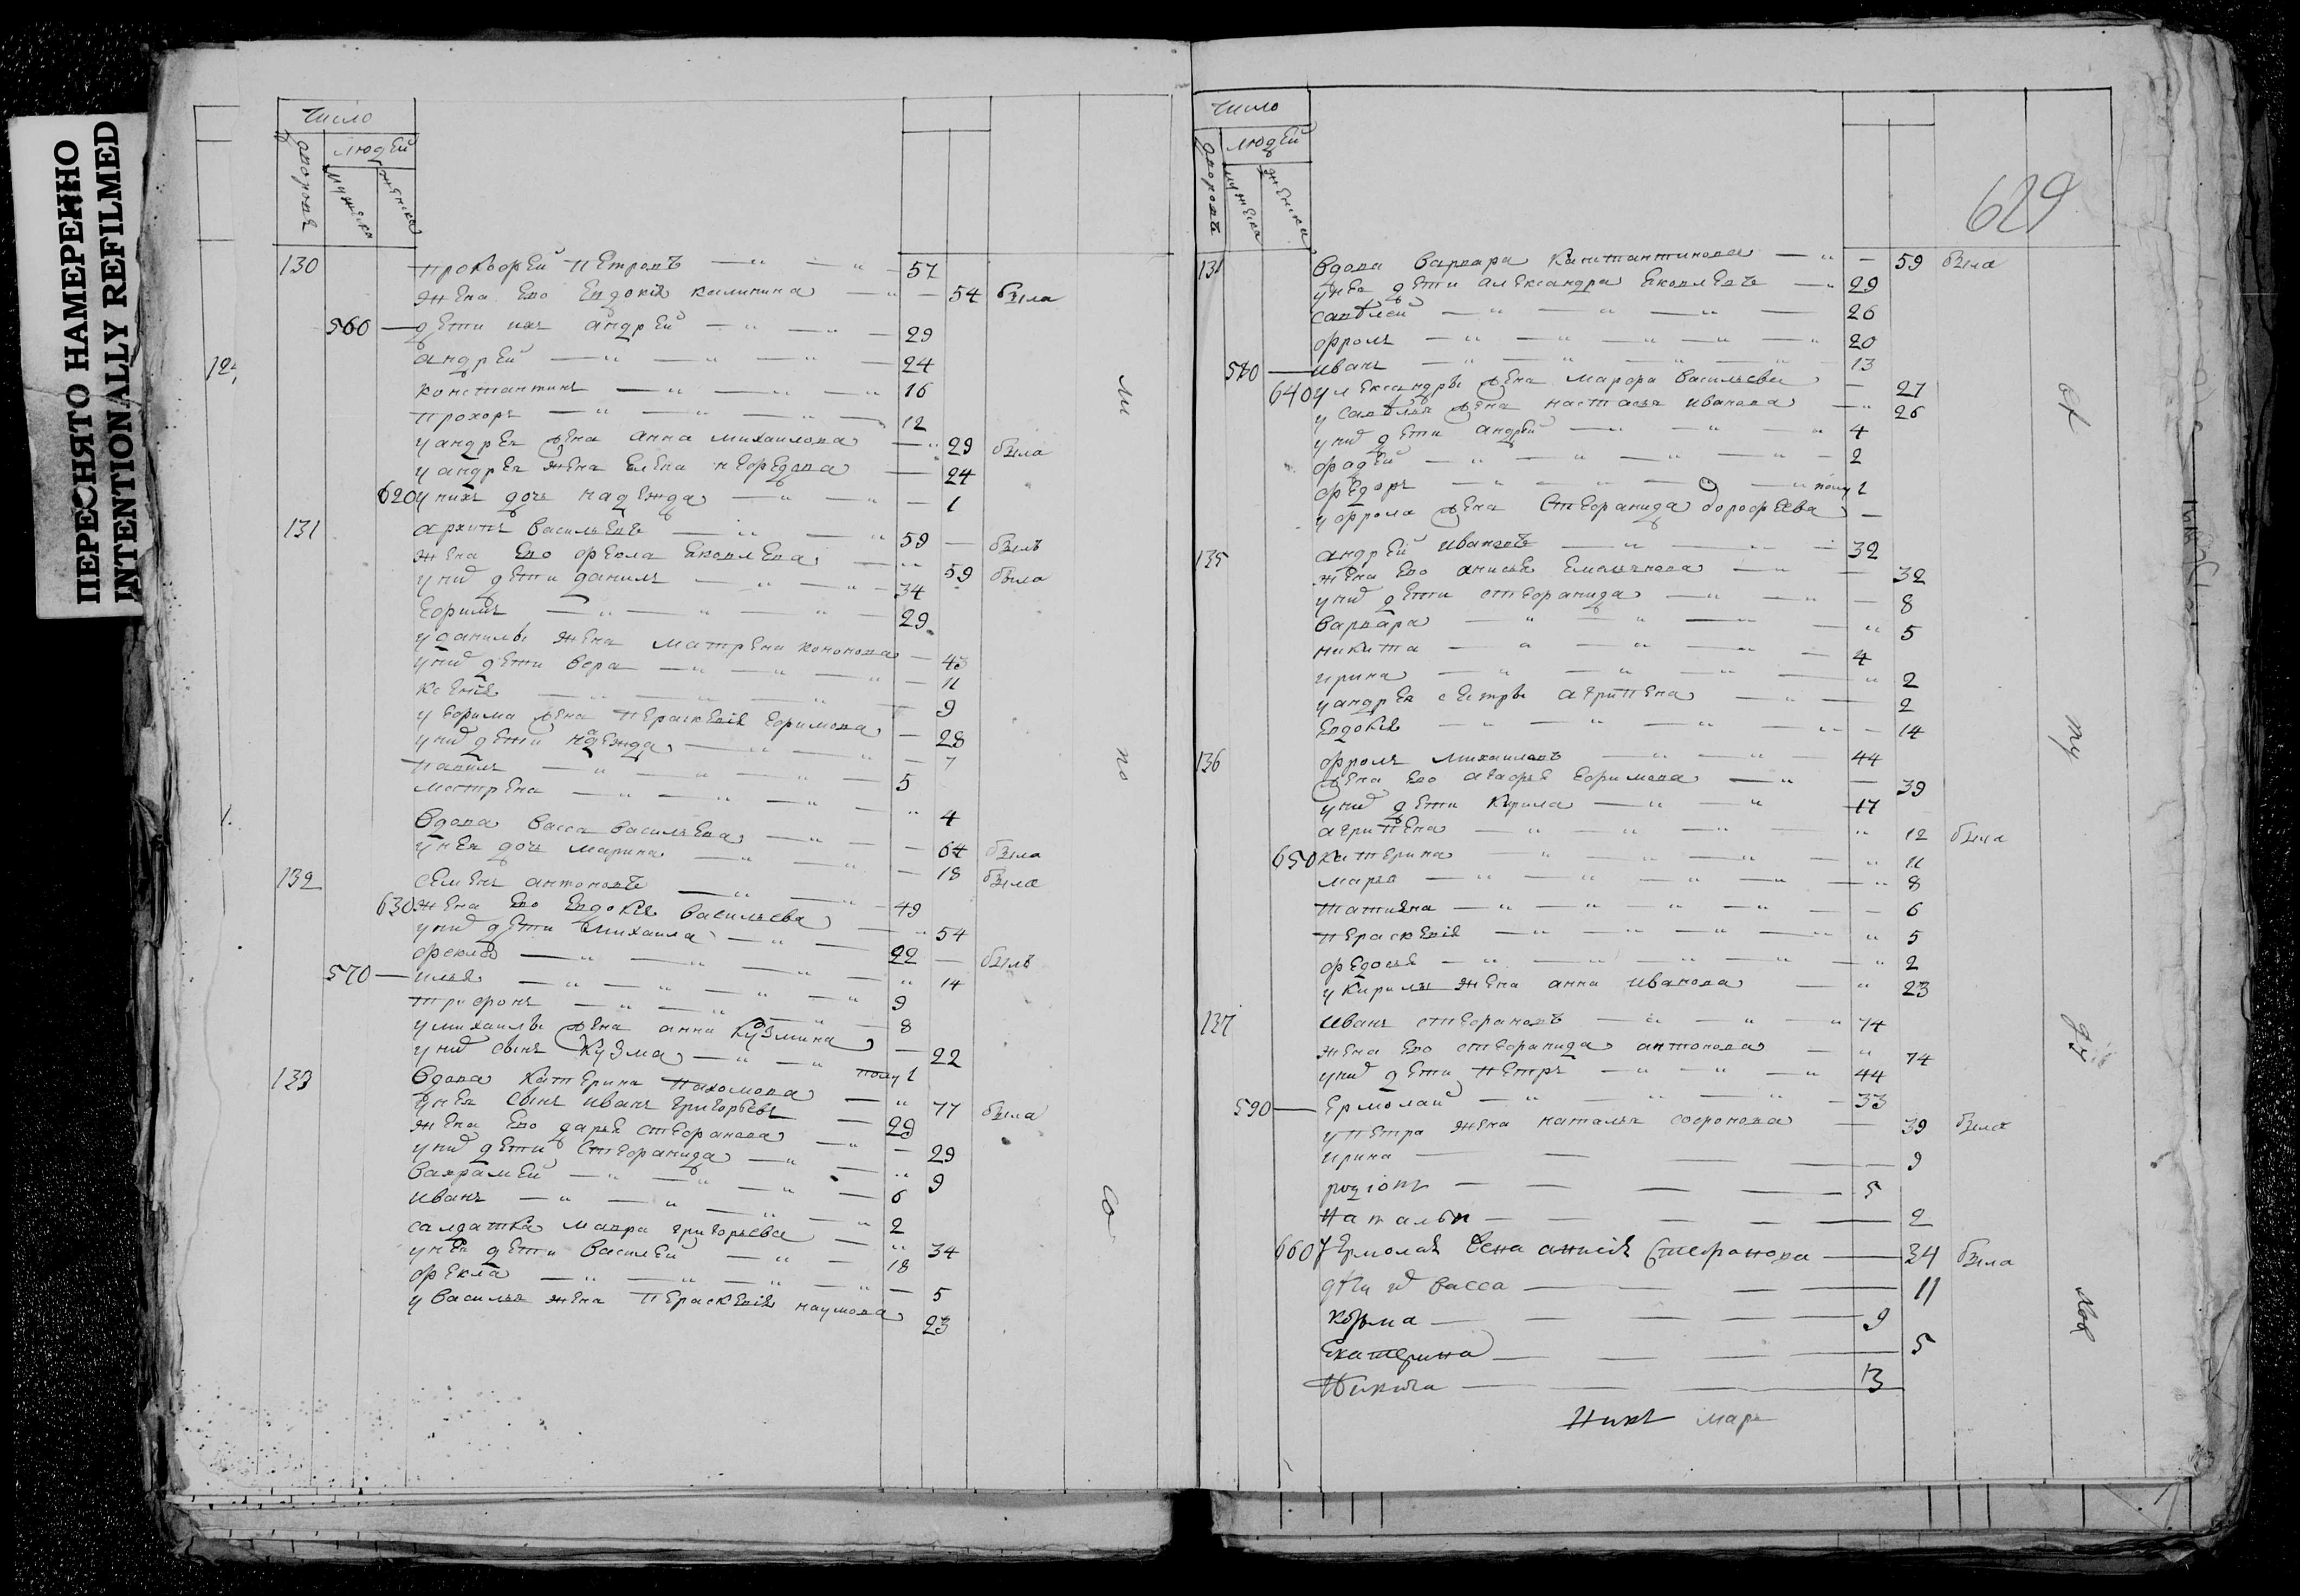 ПЕРЕСНЯТО НАМЕРЕННО
INTENTIONALLY REFILMED
Число
дворовъ
людей
мужска
женска
130 прокофей петровъ 57
жена ево евдокия калинина 54 была
560 дети ихъ андрей 29
андрей 24
константинъ 16
прохоръ 12
у андрея жена анна михаилова 29 была
у андрея жена елена нефедова 24
620 у нихъ дочь надежда 1
131 архипъ васильевъ 59 былъ
жена ево фекла яковлева 59 была
у нихъ дети данилъ 34
ефимъ 29
у данилы жена матрена кононова 43
у нихъ дети вера 11
ксения 9
у ефима жена перасковия ефимова 28
у нихъ дети надежда 7
павилъ 5
матрена 4
вдова васса васильева 64 была
у нея дочь марина 18 была
132 семенъ антоновъ 49
630 жена ево евдокия васильева 54
у нихъ дети михаила 22 былъ
фекла 14
570 илья 9
трифонъ 8
у михаилы жена анна кузмина 22
у нихъ сынъ кузма полу 1
133 вдова катерина пахомова 77 была
у нея сынъ иванъ григорьевъ 29
жена ево дарья стефанова 29
у нихъ дети стефанида 9
вахрамей 6
иванъ 2
салдатка мавра григорьева 34
у нея дети василей 18
фекла 5
у василья жена перасковия наумова 23
ли
по
со
Число
дворовъ
людей
мужска
женска
629
131 вдова варвара канстантинова 59 была
у нея дети александра яковлевъ 29
савелей 26
фролъ 20
580 иванъ 13
640 у лександры жена марфа васильева 27
у савелья жена настасья иванова 26
у нихъ дети андрей 4
фадей 2
федоръ полу 1
у фрола жена стефанида дорофеева
135 андрей ивановъ 32
жена ево анисья емельянова 32
у нихъ дети стефанида 8
варвара 5
никита 4
ирина 2
у андрея сестры агрипена 2
евдокия 14
136 фролъ михаиловъ 44
жена ево агафья ефимова 39
у нихъ дети кирила 17
агрипена 12 была
650 катерина 11
марья 8
татияна 6
перасковия 5
федосья 2
у кирилы жена анна иванова 23
137 иванъ стефановъ 74
жена ево стефанида антонова 74
у нихъ дети петръ 44
590 ермолай 33
у петра жена наталья софронова 39 была
ирина 9
родионъ 5
Наталья 2
660 у Ермолая жена анисия Стефанова 34 была
дети их васса 11
козьма 9
Екатерина 5
Никита 3
Никл марг
ту